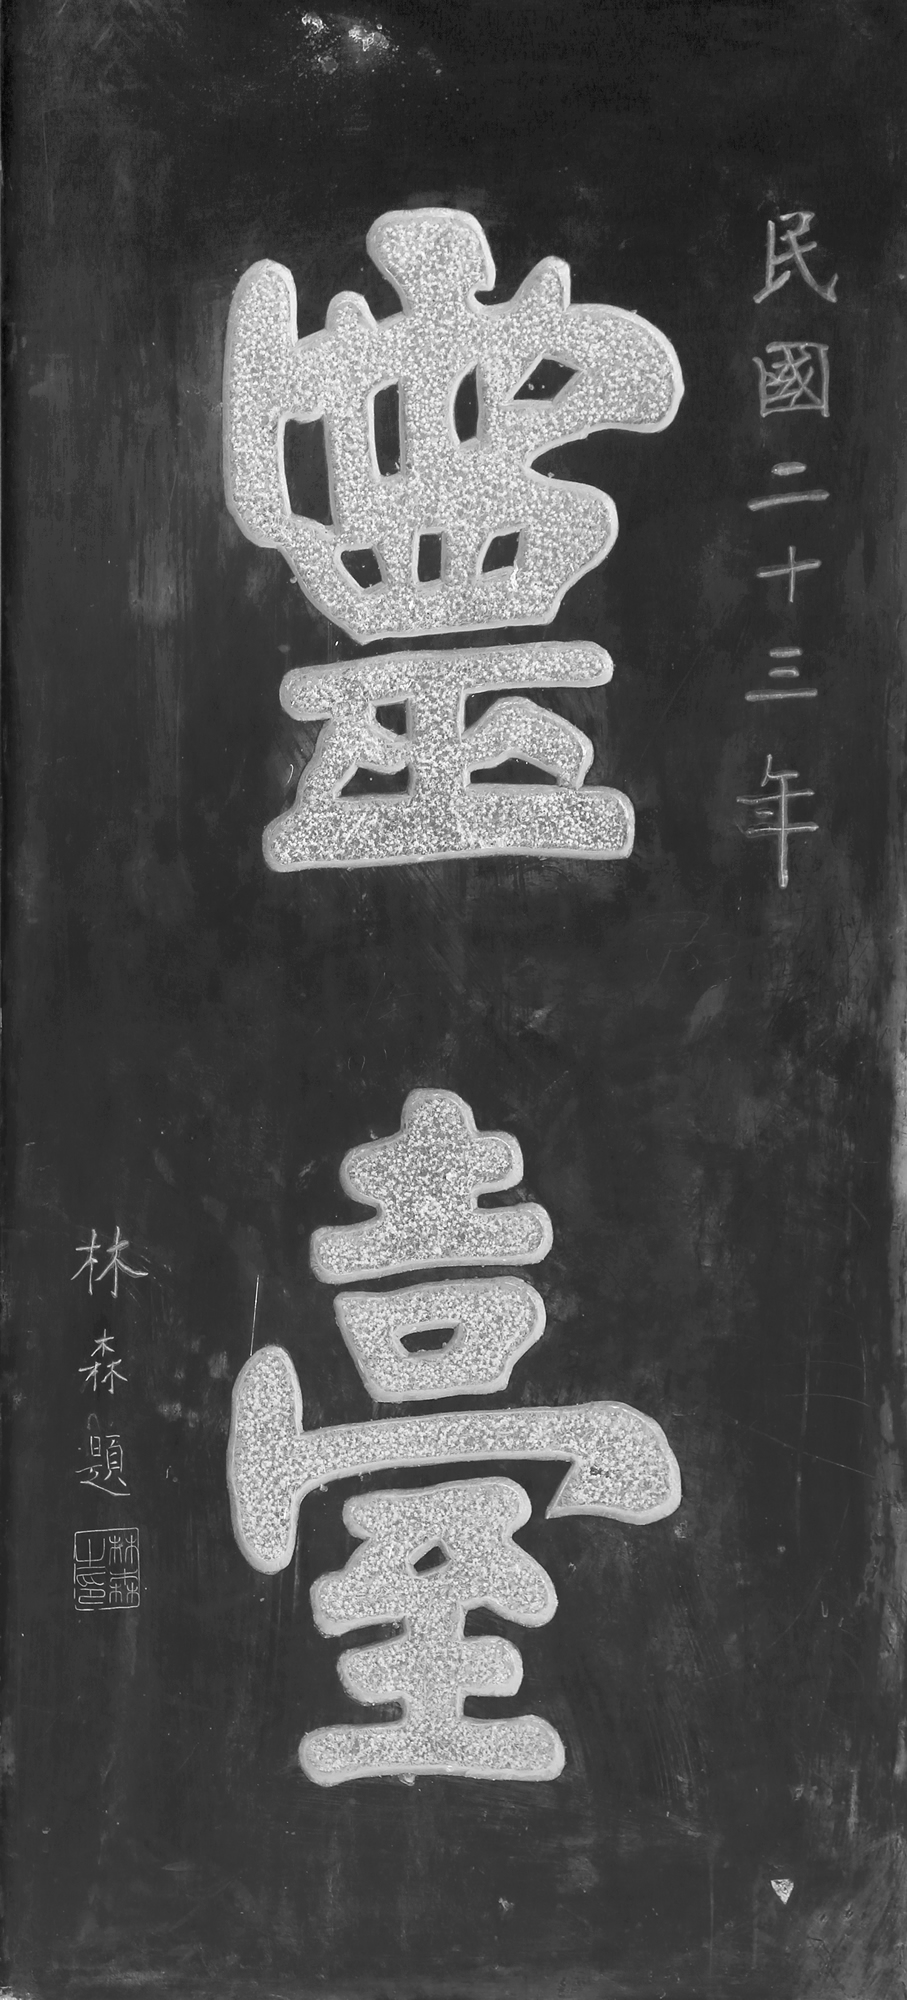 民國二十三年
靈臺
林森題
林森之印